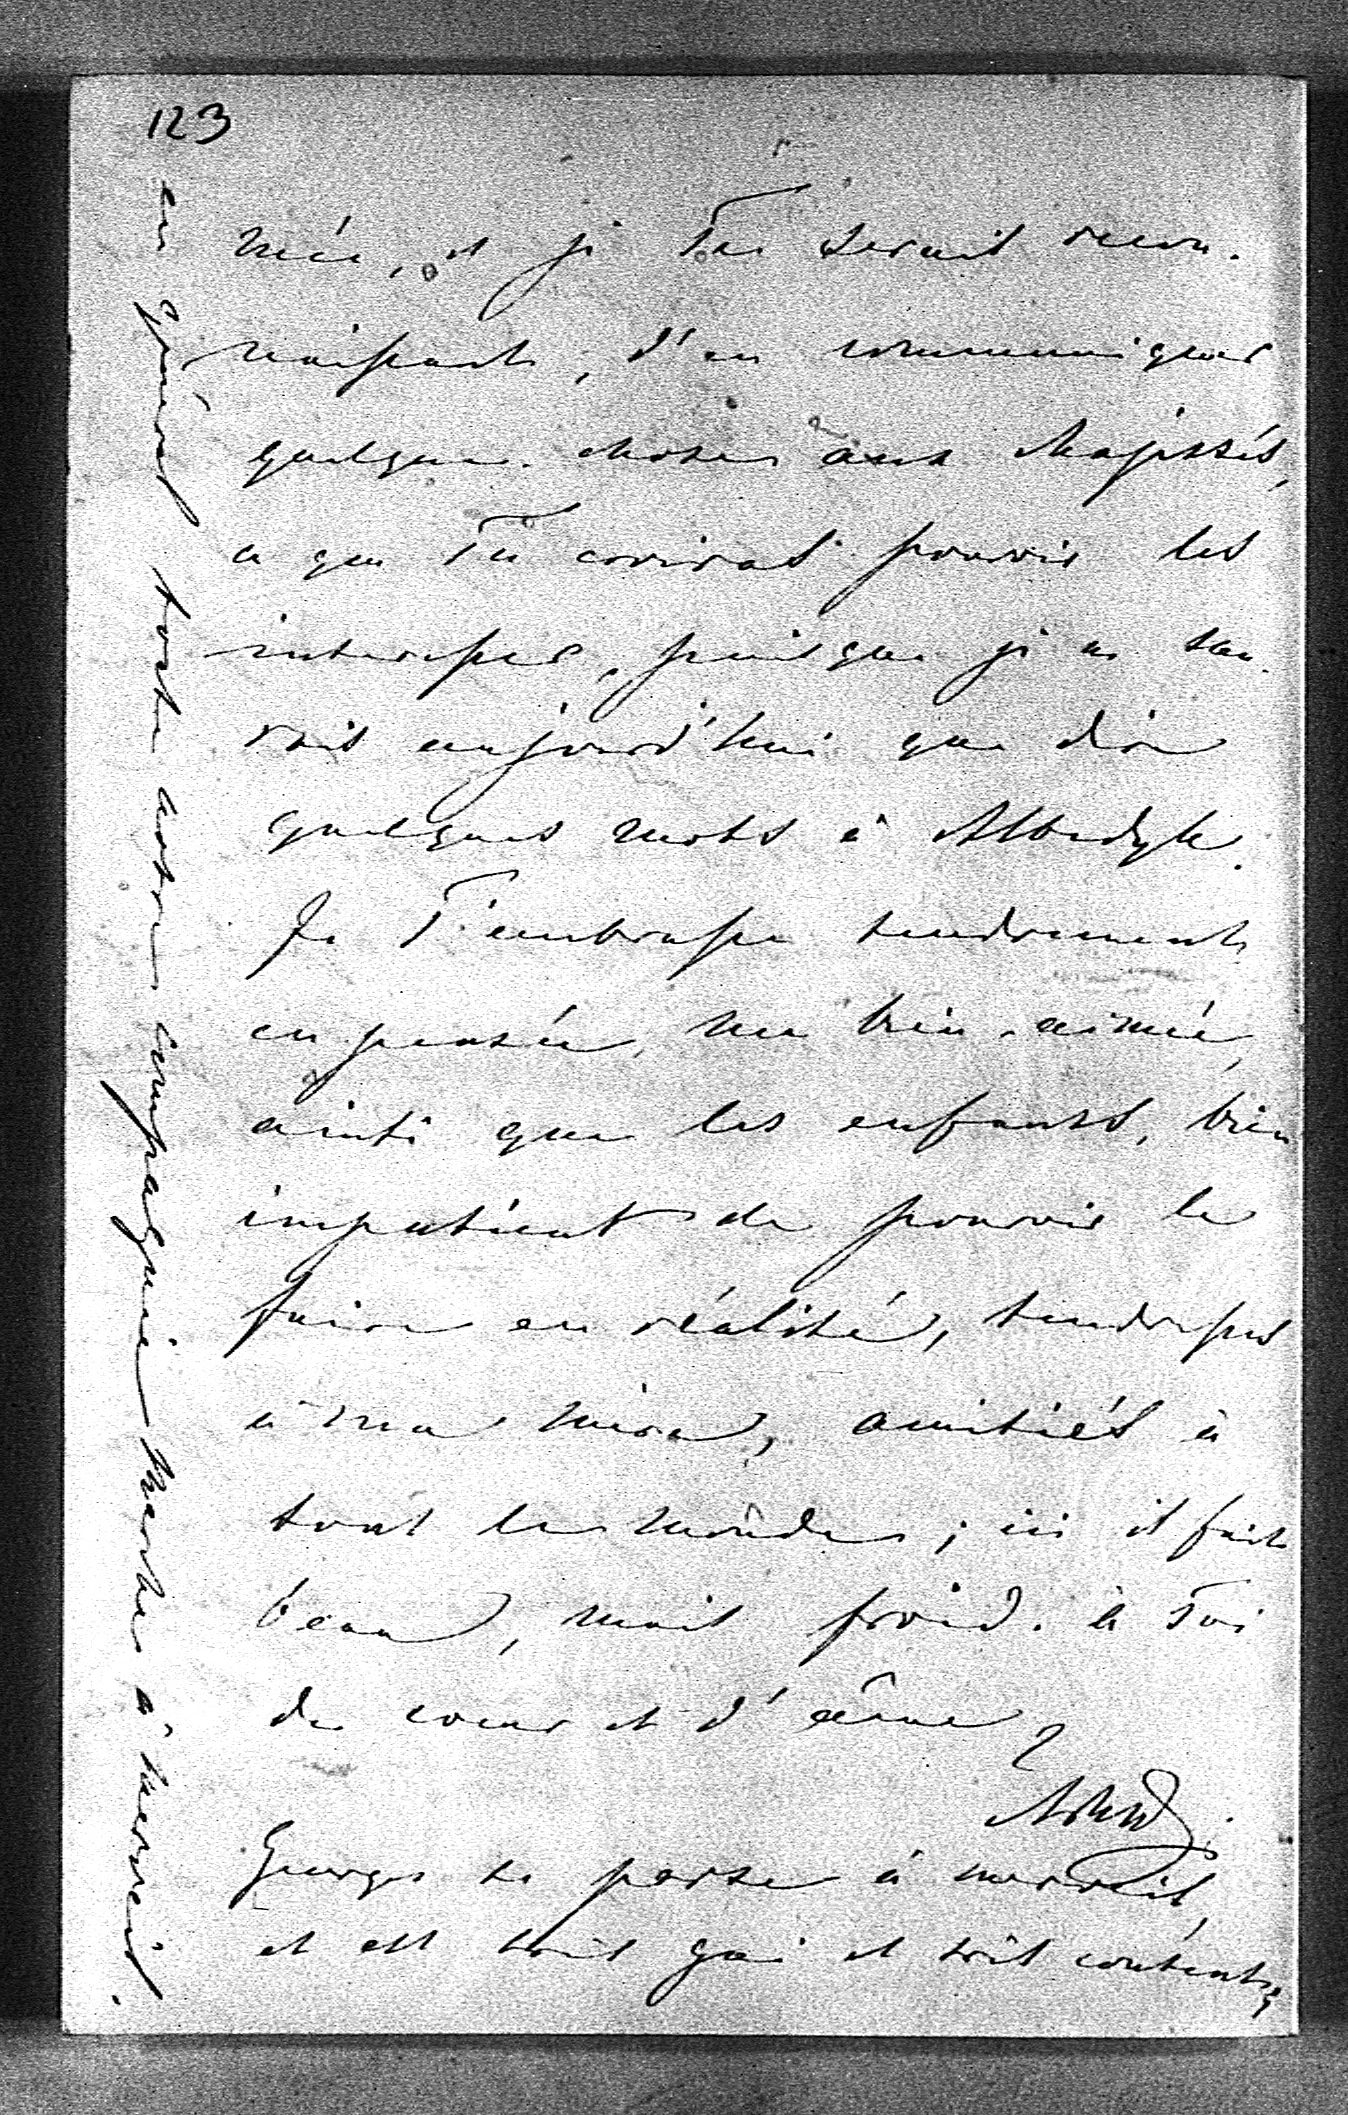 123
mée, et je Te serais recon-
naissant, d'en communiquer
quelque chose aux Majestés,
ce que Tu croiras pouvoir les
interesser, puisque je ne sau-
rais aujourd'hui que dire
quelques mots à Albedyll.
Je T'embrasse tendrement
en pensée, ma bien-aimée,
ainsi que les enfants, bien
impatient de pouvoir le
faire en réalité, tendresses
à ma mère, amitiés à
tout le monde; ici il fait
beau, mais froid. à Toi
de coeur et d'âme
Georges se porte à merveil,
et est très gai et très content,
en général toute notre compagnie marche à merveil.